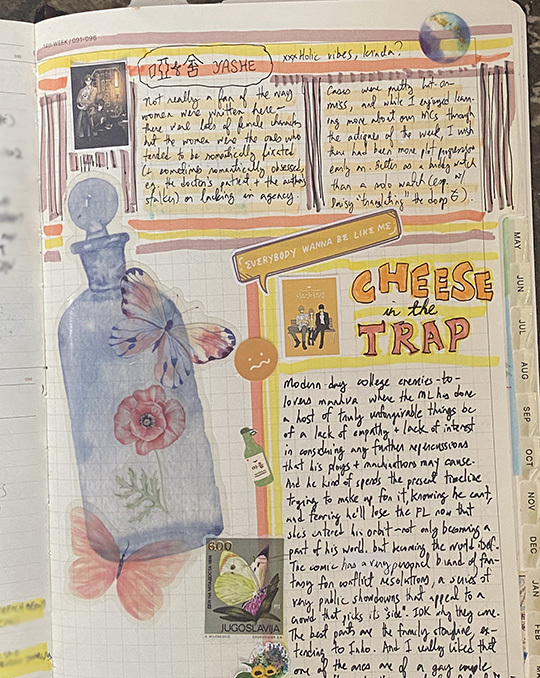 149. WEEK / 091-096
哑舍 YASHE
xxxHolic vibes, kinda?
Not really a fan of the way
women were written here—
there were lots of female characters
but the women were the ones who
tended to be romantically fixated
(+ sometimes romantically obsessed,
eg. the doctor's patient + the author's
stalker) or lacking in agency.
Cases were pretty hit-or-
miss, and while I enjoyed learn-
ing more about our MCs through
the antiques of the week, I wish
there had been more plot progression
early on. Better as a buddy watch
than a solo watch (esp. w/
Daisy translating the
EVERYBODY WANNA BE LIKE ME
CHEESE
in the
TRAP
Modern-day college enemies-to-
lovers manhwa where the ML has done
a host of truly unforgivable things bc
of a lack of empathy + lack of interest
in considering any further repercussions
that his ploys + machinations may cause.
And he kind of spends the present timeline
trying to make up for it, knowing he can't,
and fearing he'll lose the FL now that
she's entered his orbit—not only becoming a
part of his world, but becoming the world itself.
The comic has a very personal brand of fan-
tasy for conflict resolution, a series of
very public showdowns that appeal to a
crowd that picks its "side". IDK why they come.
The best parts are the family storyline, ex-
tending to Inho. And I really liked that
one of the arcs are of a gay couple
600
JUGOSLAVIJA
MAY
JUN
JUL
AUG
SEP
OCT
NOV
DEC
JAN
FEB
MAR